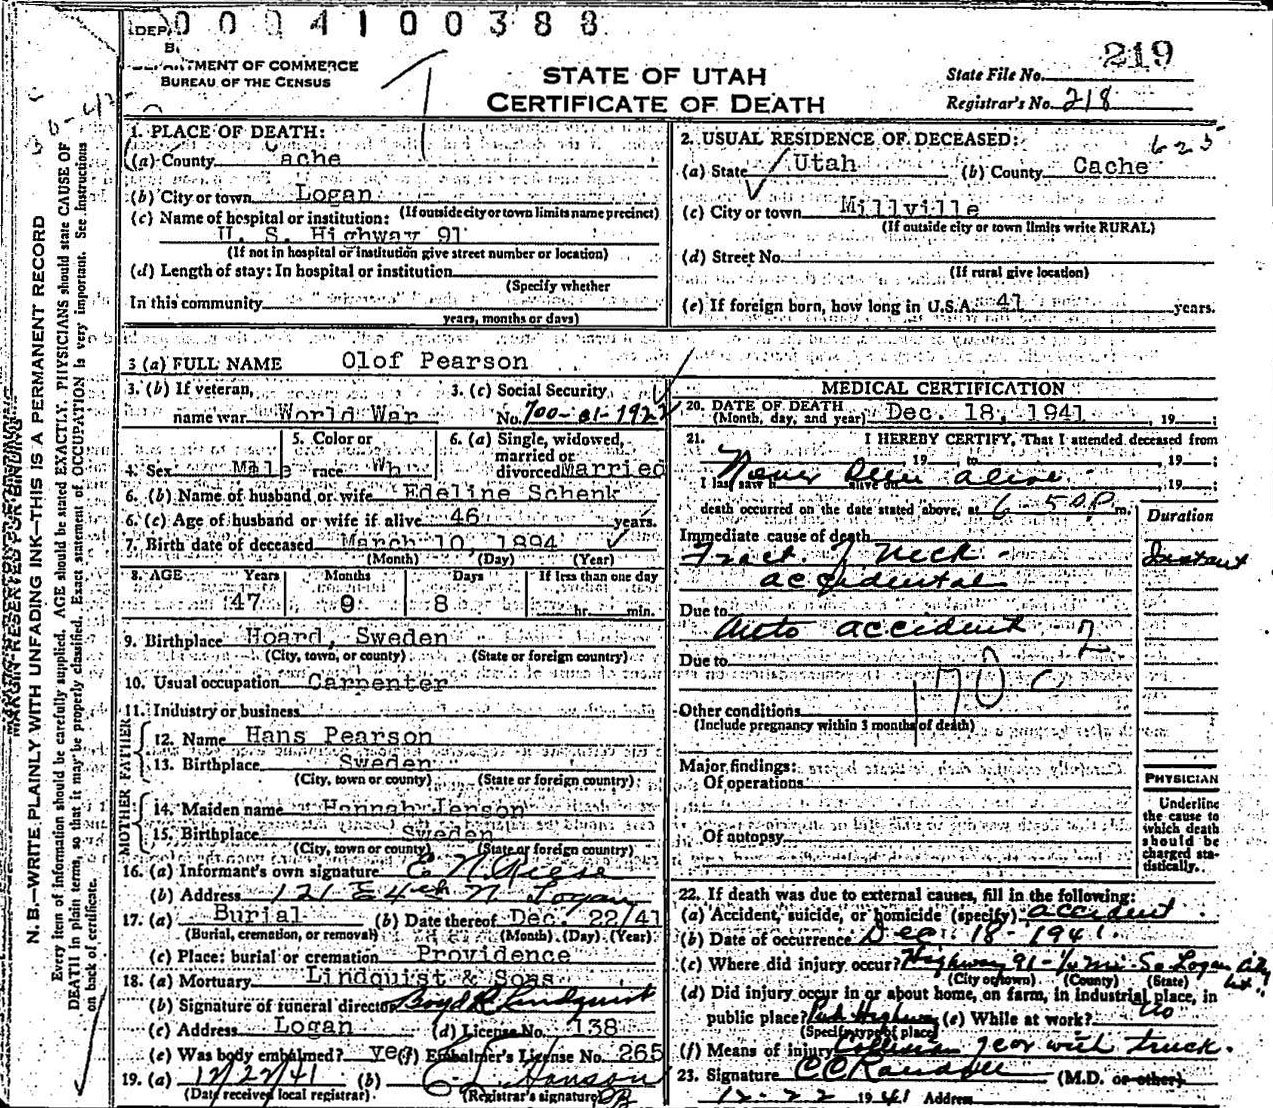 0004100388
DEPARTMENT OF COMMERCE
BUREAU OF THE CENSUS
STATE OF UTAH
CERTIFICATE OF DEATH
219
State File No.
Registrar's No. 218
1. PLACE OF DEATH:
(a) County Cache
(b) City or town Logan
(If outside city or town limits name precinct)
(c) Name of hospital or institution:
U. S. Highway 91
(If not in hospital or institution give street number or location)
(d) Length of stay: In hospital or institution
(Specify whether
In this community
years, months or days)
2. USUAL RESIDENCE OF DECEASED: 625
(a) State Utah (b) County Cache
(c) City or town Millville
(If outside city or town limits write RURAL)
(d) Street No.
(If rural give location)
(e) If foreign born, how long in U.S.A. 41 years.
3 (a) FULL NAME Olof Pearson
3. (b) If veteran, name war World War
3. (c) Social Security No. 700-01-1922
4. Sex Male
5. Color or race Wh
6. (a) Single, widowed, married or divorced Married
6. (b) Name of husband or wife Edeline Schenk
6. (c) Age of husband or wife if alive 46 years.
7. Birth date of deceased March 10, 1894
(Month) (Day) (Year)
8. AGE Years Months Days If less than one day
47 9 8 hr. min.
9. Birthplace Hoard, Sweden
(City, town, or county) (State or foreign country)
10. Usual occupation Carpenter
11. Industry or business
FATHER
12. Name Hans Pearson
13. Birthplace Sweden
(City, town or county) (State or foreign country)
MOTHER
14. Maiden name Hannah Jenson
15. Birthplace Sweden
(City, town or county) (State or foreign country)
16. (a) Informant's own signature E. N. Reese
(b) Address 121 E 4th N. Logan
17. (a) Burial (b) Date thereof Dec. 22/41
(Burial, cremation, or removal) (Month) (Day) (Year)
(c) Place: burial or cremation Providence
18. (a) Mortuary Lindquist & Sons
(b) Signature of funeral director Boyd R Lindquist
(c) Address Logan (d) License No. 138
(e) Was body embalmed? yes (f) Embalmer's License No. 265
19. (a) 12/22/41 (b) E L Hanson
(Date received local registrar) (Registrar's signature)
MEDICAL CERTIFICATION
20. DATE OF DEATH Dec. 18, 1941, 19 ;
(Month, day, and year)
21. I HEREBY CERTIFY, That I attended deceased from
, 19 to , 19 ;
I last saw h alive on , 19 ;
Never seen alive
death occurred on the date stated above, at 6 50 P m.
Duration
Immediate cause of death
Fract. of neck - Instant
accidental
Due to
Auto accident
Due to
170 c
Other conditions
(Include pregnancy within 3 months of death)
Major findings:
Of operations
Of autopsy
PHYSICIAN
Underline
the cause to
which death
should be
charged sta-
tistically.
22. If death was due to external causes, fill in the following:
(a) Accident, suicide, or homicide (specify) accident
(b) Date of occurrence Dec. 18-1941.
(c) Where did injury occur? Highway 91- So Logan City
(City or town) (County) (State)
(d) Did injury occur in or about home, on farm, in industrial place, in
public place? Pub Highway (e) While at work? No
(Specify type of place)
(f) Means of injury Collision of car with truck.
23. Signature C C Randall (M.D. or other)
12-22 1941 Address
MARGIN RESERVED FOR BINDING
N. B.—WRITE PLAINLY WITH UNFADING INK—THIS IS A PERMANENT RECORD
Every item of information should be carefully supplied. AGE should be stated EXACTLY. PHYSICIANS should state CAUSE OF
DEATH in plain terms, so that it may be properly classified. Exact statement of OCCUPATION is very important. See instructions
on back of certificate.